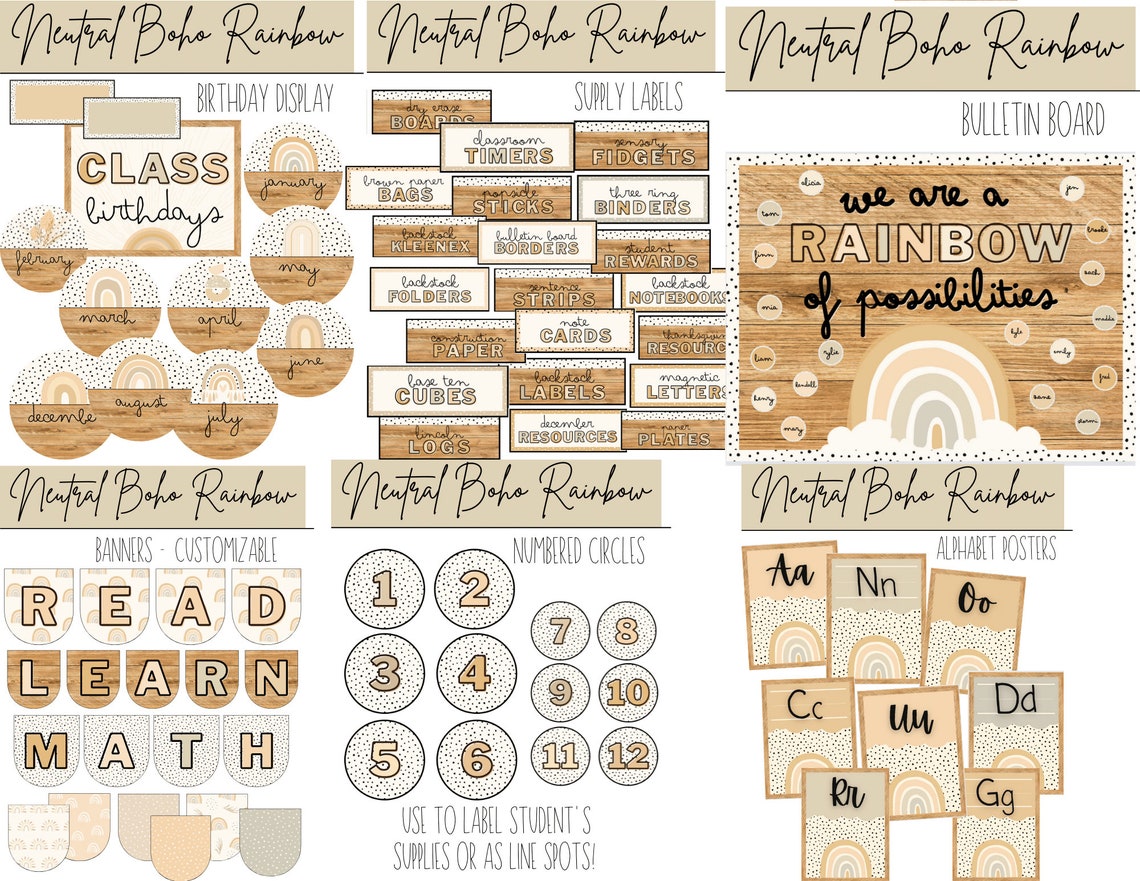 Neutral Boho Rainbow
BIRTHDAY DISPLAY
CLASS
birthdays
january
february
may
march
april
june
december
august
july
Neutral Boho Rainbow
SUPPLY LABELS
dry erase
BOARDS
classroom
TIMERS
sensory
FIDGETS
brown paper
BAGS
popsicle
STICKS
three ring
BINDERS
backstock
KLEENEX
bulletin board
BORDERS
student
REWARDS
backstock
FOLDERS
sentence
STRIPS
backstock
NOTEBOOKS
note
CARDS
construction
PAPER
thanksgiving
RESOURC
base ten
CUBES
backstock
LABELS
magnetic
LETTERS
lincoln
LOGS
december
RESOURCES
paper
PLATES
Neutral Boho Rainbow
BULLETIN BOARD
we are a
RAINBOW
of possibilities
alicia
jen
tom
brooke
finn
zach
mia
maddie
kyle
liam
rylie
emily
kendall
fred
henry
sane
mary
stormi
Neutral Boho Rainbow
BANNERS - CUSTOMIZABLE
READ
LEARN
MATH
Neutral Boho Rainbow
NUMBERED CIRCLES
1 2
7 8
3 4
9 10
5 6
11 12
USE TO LABEL STUDENT'S
SUPPLIES OR AS LINE SPOTS!
Neutral Boho Rainbow
ALPHABET POSTERS
Aa
Nn
Oo
Cc
Uu
Dd
Rr
Gg